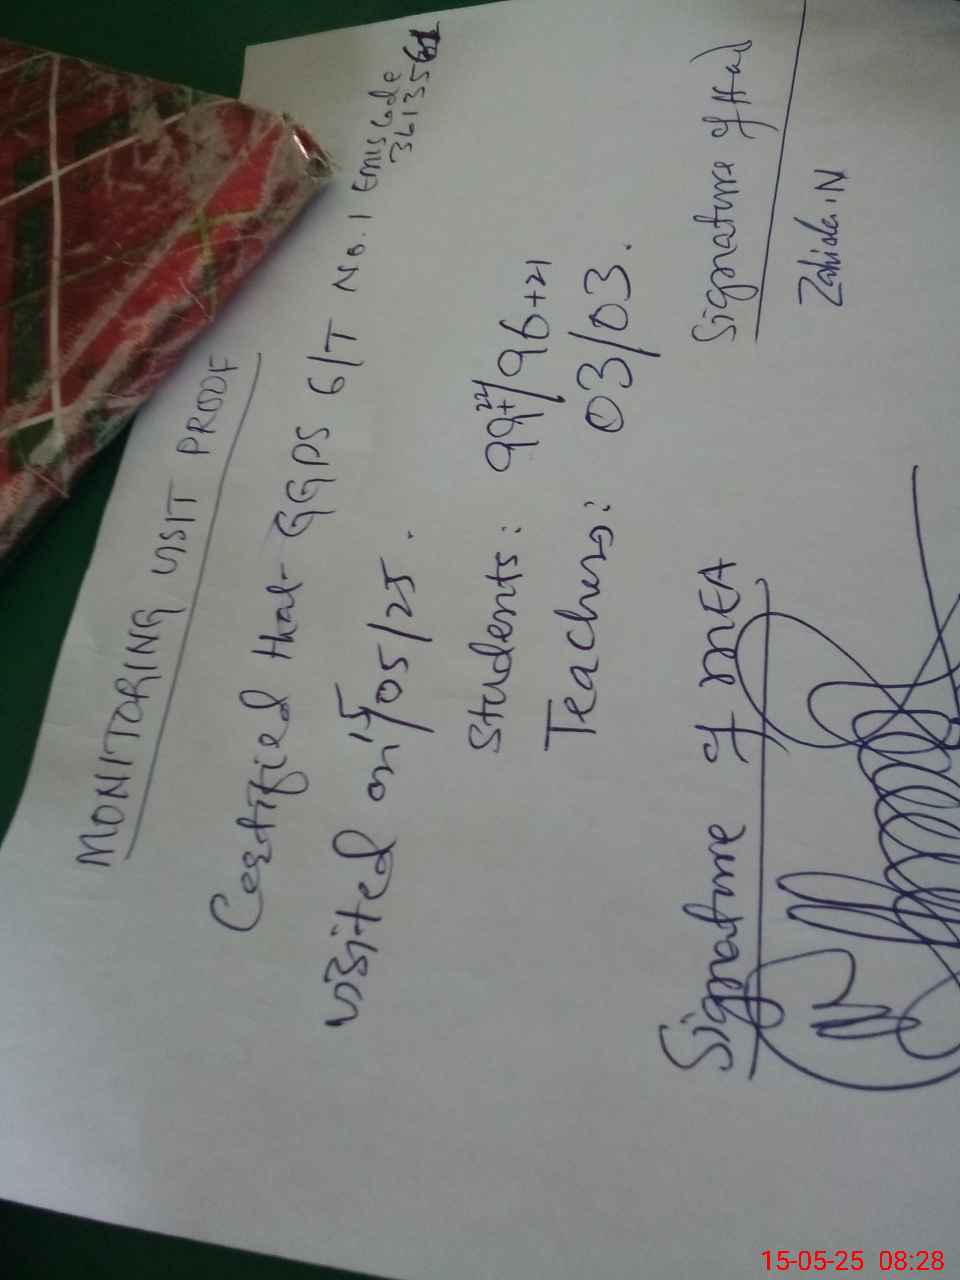 MONITORING VISIT PROOF
Certified that GGPS G/T No.1 Emis Code
visited on 15/05/25.
Students: 99+22/96+21
Teachers: 03/03.
Signature of MEA
Signature of Head
Zahida.N
15-05-25 08:28